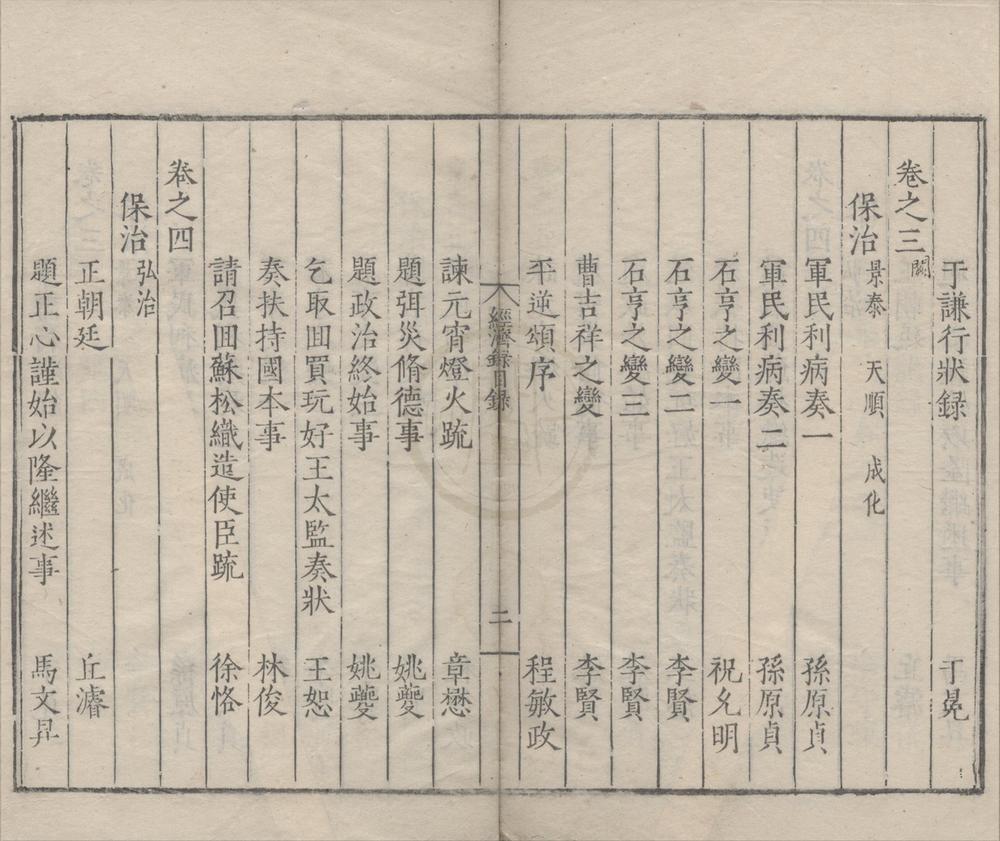 于謙行狀録 于冕
卷之三 闕
保治 景泰 天順 成化
軍民利病奏一 孫原貞
軍民利病奏二 孫原貞
石亨之變一 祝允明
石亨之變二 李賢
石亨之變三 李賢
曹吉祥之變 李賢
平逆頌序 程敏政
經濟録目録 二
諫元宵燈火疏 章懋
題弭災脩德事 姚夔
題政治終始事 姚夔
乞取回買玩好王太監奏狀 王恕
奏扶持國本事 林俊
請召回蘇松織造使臣疏 徐恪
卷之四
保治 弘治
正朝廷 丘濬
題正心謹始以隆繼述事 馬文昇